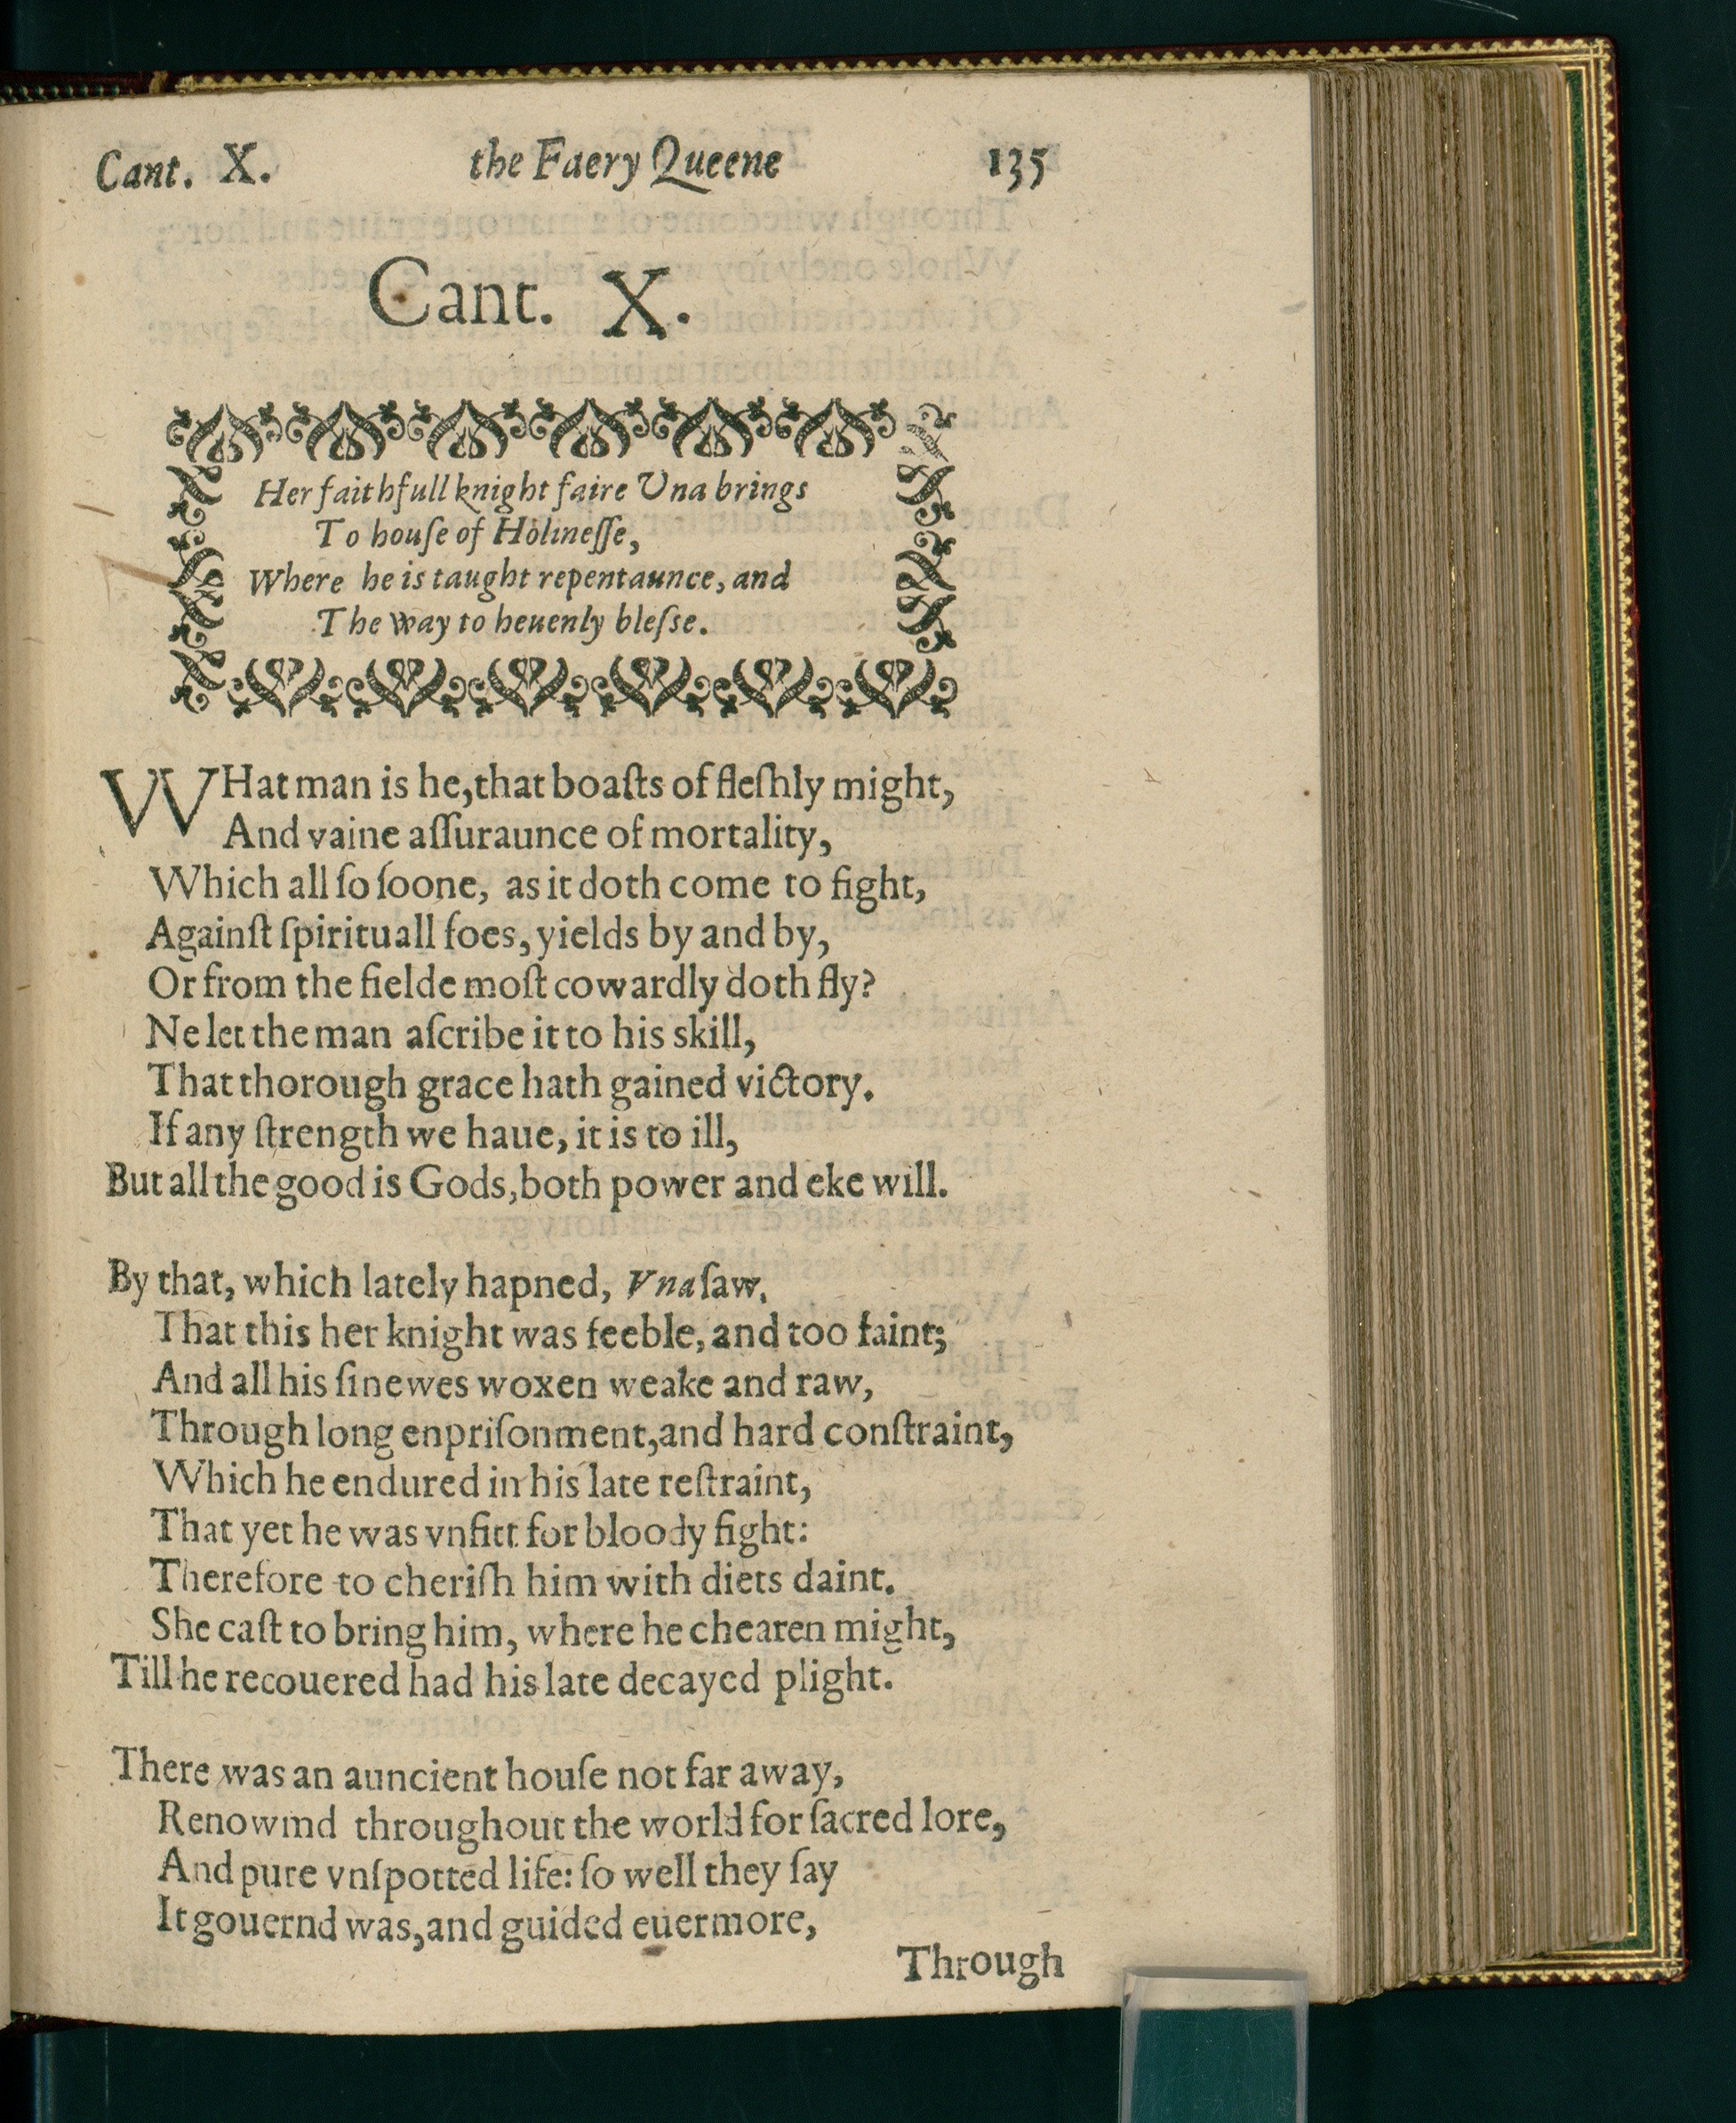 Cant. X. the Faery Queene 135
Cant. X.
Her faithfull knight faire Vna brings
To houſe of Holineſſe,
Where he is taught repentaunce, and
The way to heuenly bleſse.
WHat man is he, that boaſts of fleſhly might,
And vaine aſſuraunce of mortality,
Which all ſo ſoone, as it doth come to fight,
Againſt ſpirituall foes, yields by and by,
Or from the fielde moſt cowardly doth fly?
Ne let the man aſcribe it to his skill,
That thorough grace hath gained victory.
If any ſtrength we haue, it is to ill,
But all the good is Gods, both power and eke will.
By that, which lately hapned, Vna ſaw,
That this her knight was feeble, and too faint;
And all his ſinewes woxen weake and raw,
Through long enpriſonment, and hard conſtraint,
Which he endured in his late reſtraint,
That yet he was vnfitt for bloody fight:
Therefore to cheriſh him with diets daint.
She caſt to bring him, where he chearen might,
Till he recouered had his late decayed plight.
There was an auncient houſe not far away,
Renowmd throughout the world for ſacred lore,
And pure vnſpotted life: ſo well they ſay
It gouernd was, and guided euermore,
Through